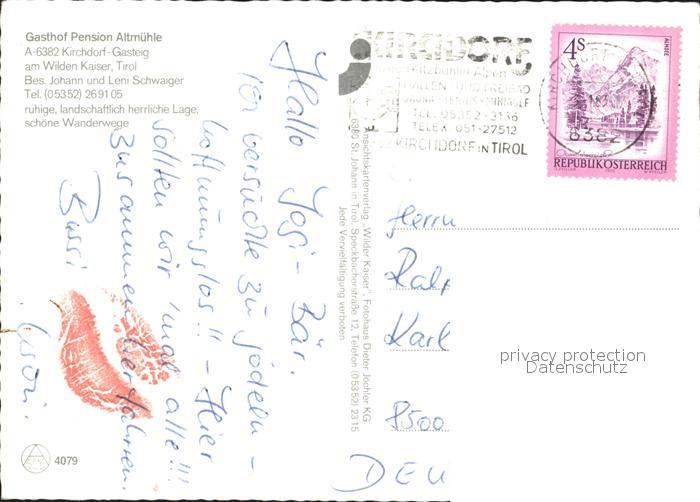 Gasthof Pension Altmühle
A-6382 Kirchdorf-Gasteig
am Wilden Kaiser, Tirol
Bes. Johann und Leni Schwaiger
Tel. (05352) 269105
ruhige, landschaftlich herrliche Lage,
schöne Wanderwege
Hallo Yogi-Bär.
Ich versuchte zu jodeln -
hoffnungslos!! - Hier
sollten wir 'mal alle!!!
zusammen herfahren.
Bussi
4079
Ansichtskartenverlag „Wilder Kaiser“, Fotohaus Dieter Jöchler KG
6380 St. Johann in Tirol, Speckbacherstraße 12, Telefon (05352) 2315
Jede Vervielfältigung verboten
KIRCHDORF
Kitzbühler Alpen
HALLEN- UND FREIBAD
SAUNA-TENNIS-MINIGOLF
TEL. 05352-3136
TELEX 051-27512
KIRCHDORF IN TIROL
6382
4s
ALMSEE
REPUBLIK ÖSTERREICH
Herrn
Ral
Karl
8500
DEU
privacy protection
Datenschutz